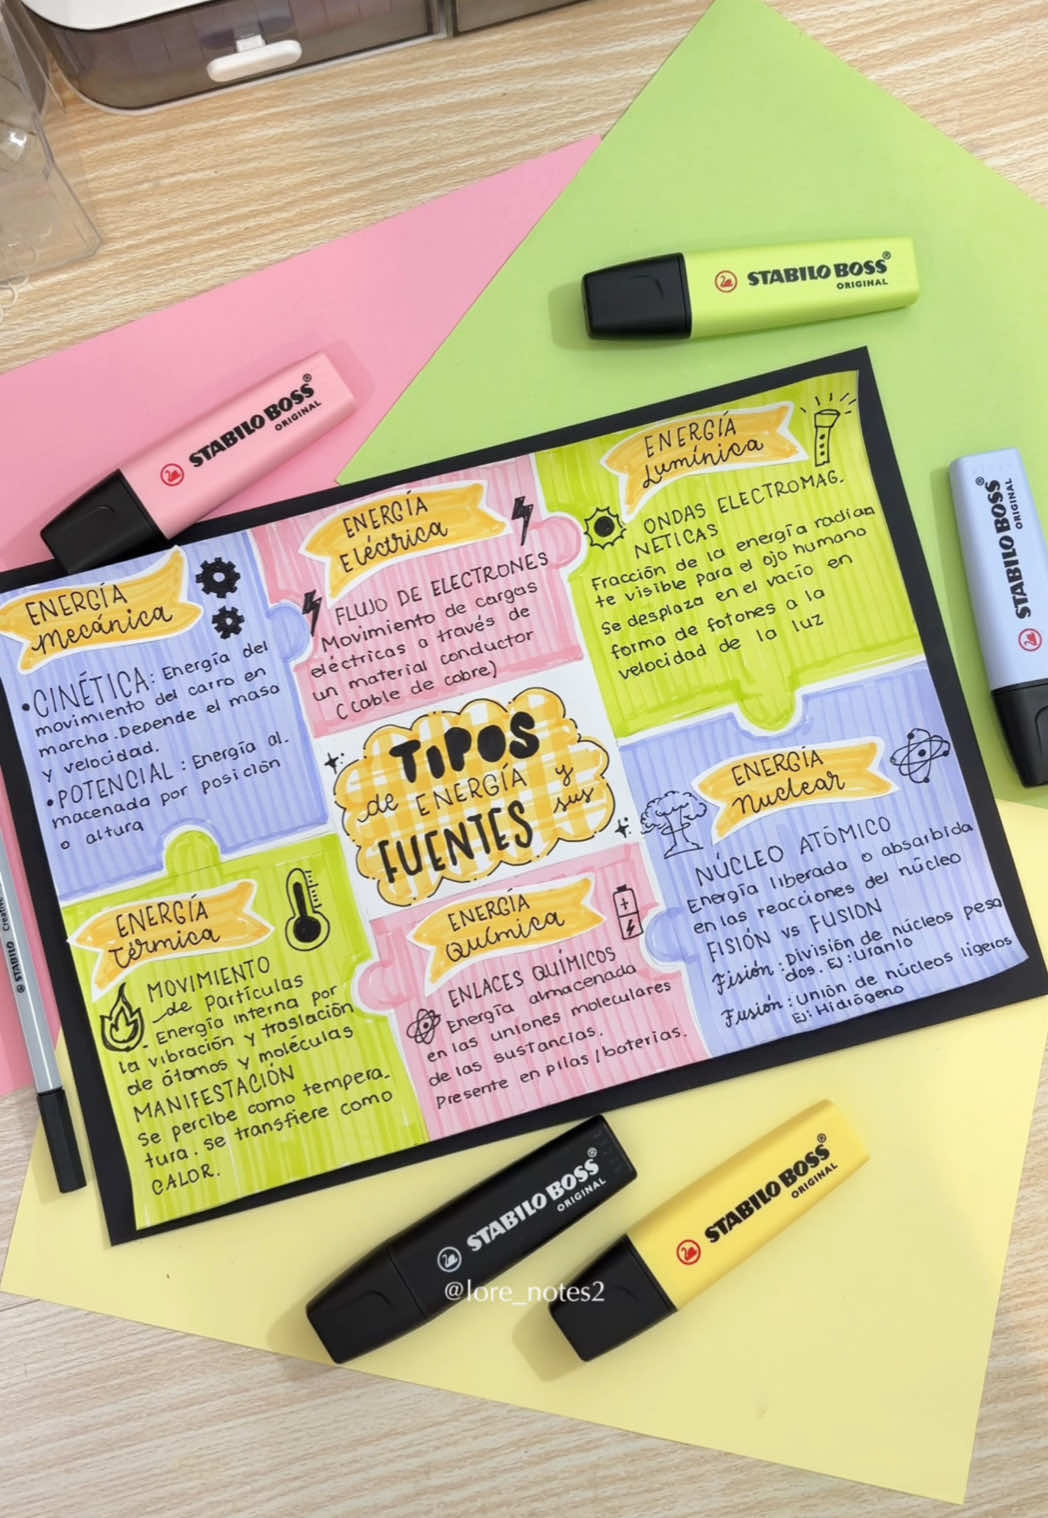 STABILO BOSS®
ORIGINAL
STABILO BOSS®
ORIGINAL
STABILO BOSS®
ORIGINAL
ENERGÍA
Mecánica
• CINÉTICA: Energía del
movimiento del carro en
marcha. Depende el masa
y velocidad.
• POTENCIAL: Energía al-
macenada por posición
o altura
ENERGÍA
Eléctrica
FLUJO DE ELECTRONES
Movimiento de cargas
eléctricas a través de
un material conductor
(Ccable de cobre)
ENERGÍA
Lumínica
ONDAS ELECTROMAG-
NETICAS
Fracción de la energía radian
te visible para el ojo humano
Se desplaza en el vacío en
forma de fotones a la
velocidad de la luz
TIPOS
de ENERGÍA y
FUENTES sus
ENERGÍA
Térmica
MOVIMIENTO
de Partículas
- Energía Interna por
la vibración y traslación
de átomos y moléculas
MANIFESTACIÓN
Se percibe como tempera-
tura. se transfiere como
CALOR.
ENERGÍA
Química
ENLACES QUÍMICOS
Energía almacenada
en las uniones moleculares
de las sustancias.
Presente en pilas/baterías.
ENERGÍA
Nuclear
NÚCLEO ATÓMICO
Energía liberada o absorbida
en las reacciones del núcleo
FISIÓN vs FUSION
Fisión: División de núcleos pesa
dos. EJ: Uranio
Fusión: Unión de núcleos ligeros
EJ: Hidrógeno
STABILO
STABILO BOSS®
ORIGINAL
STABILO BOSS®
ORIGINAL
@lore_notes2